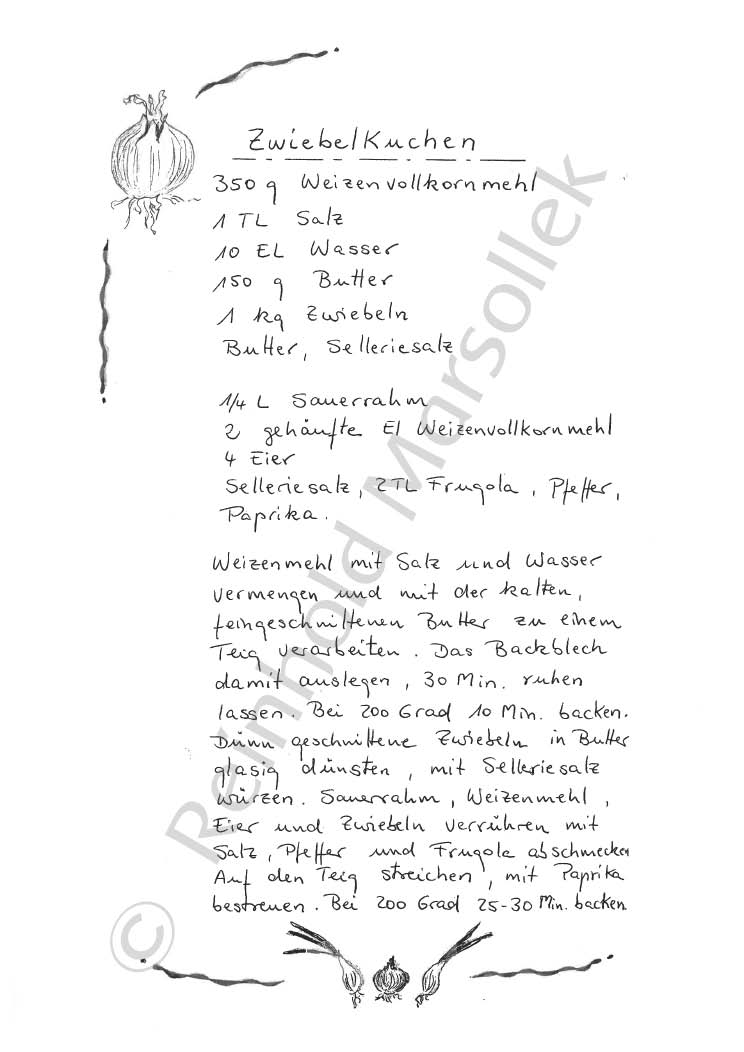 ZwiebelKuchen
350 g Weizenvollkornmehl
1 TL Salz
10 EL Wasser
150 g Butter
1 kg Zwiebeln
Butter, Selleriesalz
1/4 L Sauerrahm
2 gehäufte El Weizenvollkornmehl
4 Eier
Selleriesalz, 2TL Frugola, Pfeffer,
Paprika.
Weizenmehl mit Salz und Wasser
vermengen und mit der kalten,
feingeschnittenen Butter zu einem
Teig verarbeiten. Das Backblech
damit auslegen, 30 Min. ruhen
lassen. Bei 200 Grad 10 Min. backen.
Dünn geschnittene Zwiebeln in Butter
glasig dünsten, mit Selleriesalz
würzen. Sauerrahm, Weizenmehl,
Eier und Zwiebeln verrühren mit
Salz, Pfeffer und Frugola abschmecken
Auf den Teig streichen, mit Paprika
bestreuen. Bei 200 Grad 25-30 Min. backen
© Reinhold Marsollek